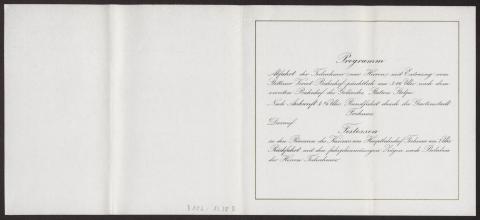 Programm
Abfahrt der Teilnehmer (nur Herren) mit Extrazug vom
Stettiner Vorort Bahnhof pünktlich um 3.00 Uhr nach dem
neuen Bahnhof des Geländes Station Stolpe
Nach Ankunft 4 ¼ Uhr Rundfahrt durch die Gartenstadt
Frohnau
Darauf
Festessen
in den Räumen des Kasinos am Hauptbahnhof Frohnau um 5 Uhr
Rückfahrt mit den fahrplanmässigen Zügen nach Belieben
der Herren Teilnehmer